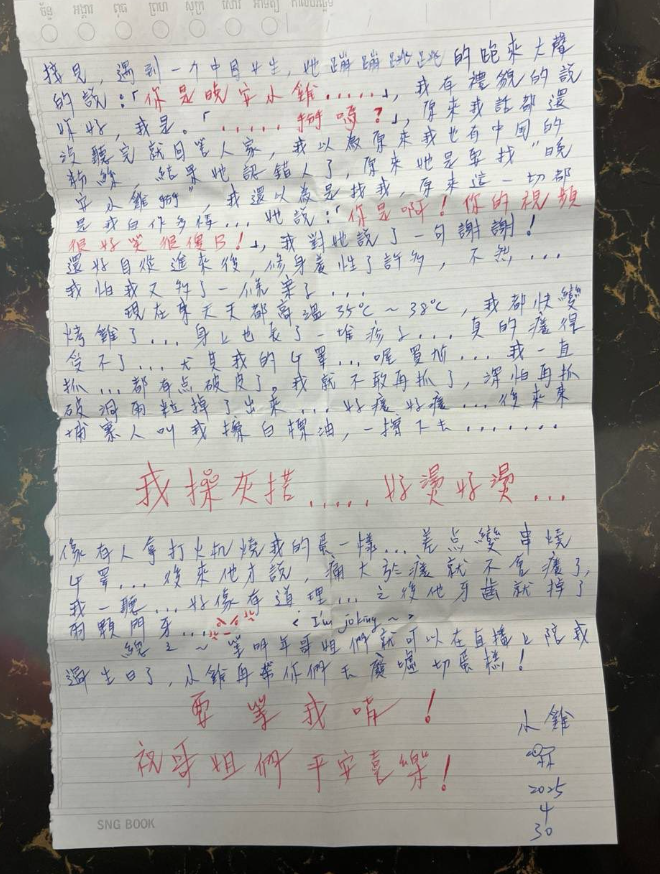 ច័ន្ទ អង្គារ ពុធ ព្រហ សុក្រ សៅរ៍ អាទិត្យ
找見，遇到一个中國女生，她蹦蹦跳跳的跑來大聲
的說：「你是晚安小雞.....」，我有禮貌的說
你好，我是。「......掰嗎？」，原來我話都還
沒聽完就回答人家，我以為原來我也有中国的
粉絲，結果她認錯人了，原來她是要找"晚
安小雞"，我還以為是找我，原來這一切都
是我自作多情...她說：「你是啊！你的視頻
很好笑很傻B！」，我對她說了一句謝謝！
還好自從進來後，修身養性了許多，不然...
我怕我又犯了一條案子...
現在柬天天都高溫35℃～38℃，我都快變
烤雞了...身上也長了一堆疹子...真的癢得
受不了...尤其我的ㄐ睪...喔買尬...我一直
抓...都有点破皮了。我就不敢再抓了，深怕再抓
破洞兩粒掉了出來...好癢好癢...後來柬
埔寨人叫我擦白樹油，一擦下去.......
我操灰搭.....好燙好燙...
像有人拿打火机燒我的蛋一樣...差点變串燒
ㄐ睪...後來他才說，痛大於癢就不會癢了，
我一聽...好像有道理...之後他牙齒就掉了
兩顆門牙... < I'm joking ~ >
總之~等明年哥姐們就可以在直播上陪我
過生日了，小雞再帶你們去廢墟切蛋糕！
要等我唷！
祝哥姐們平安喜樂！
小雞
2025
4
30
SNG BOOK